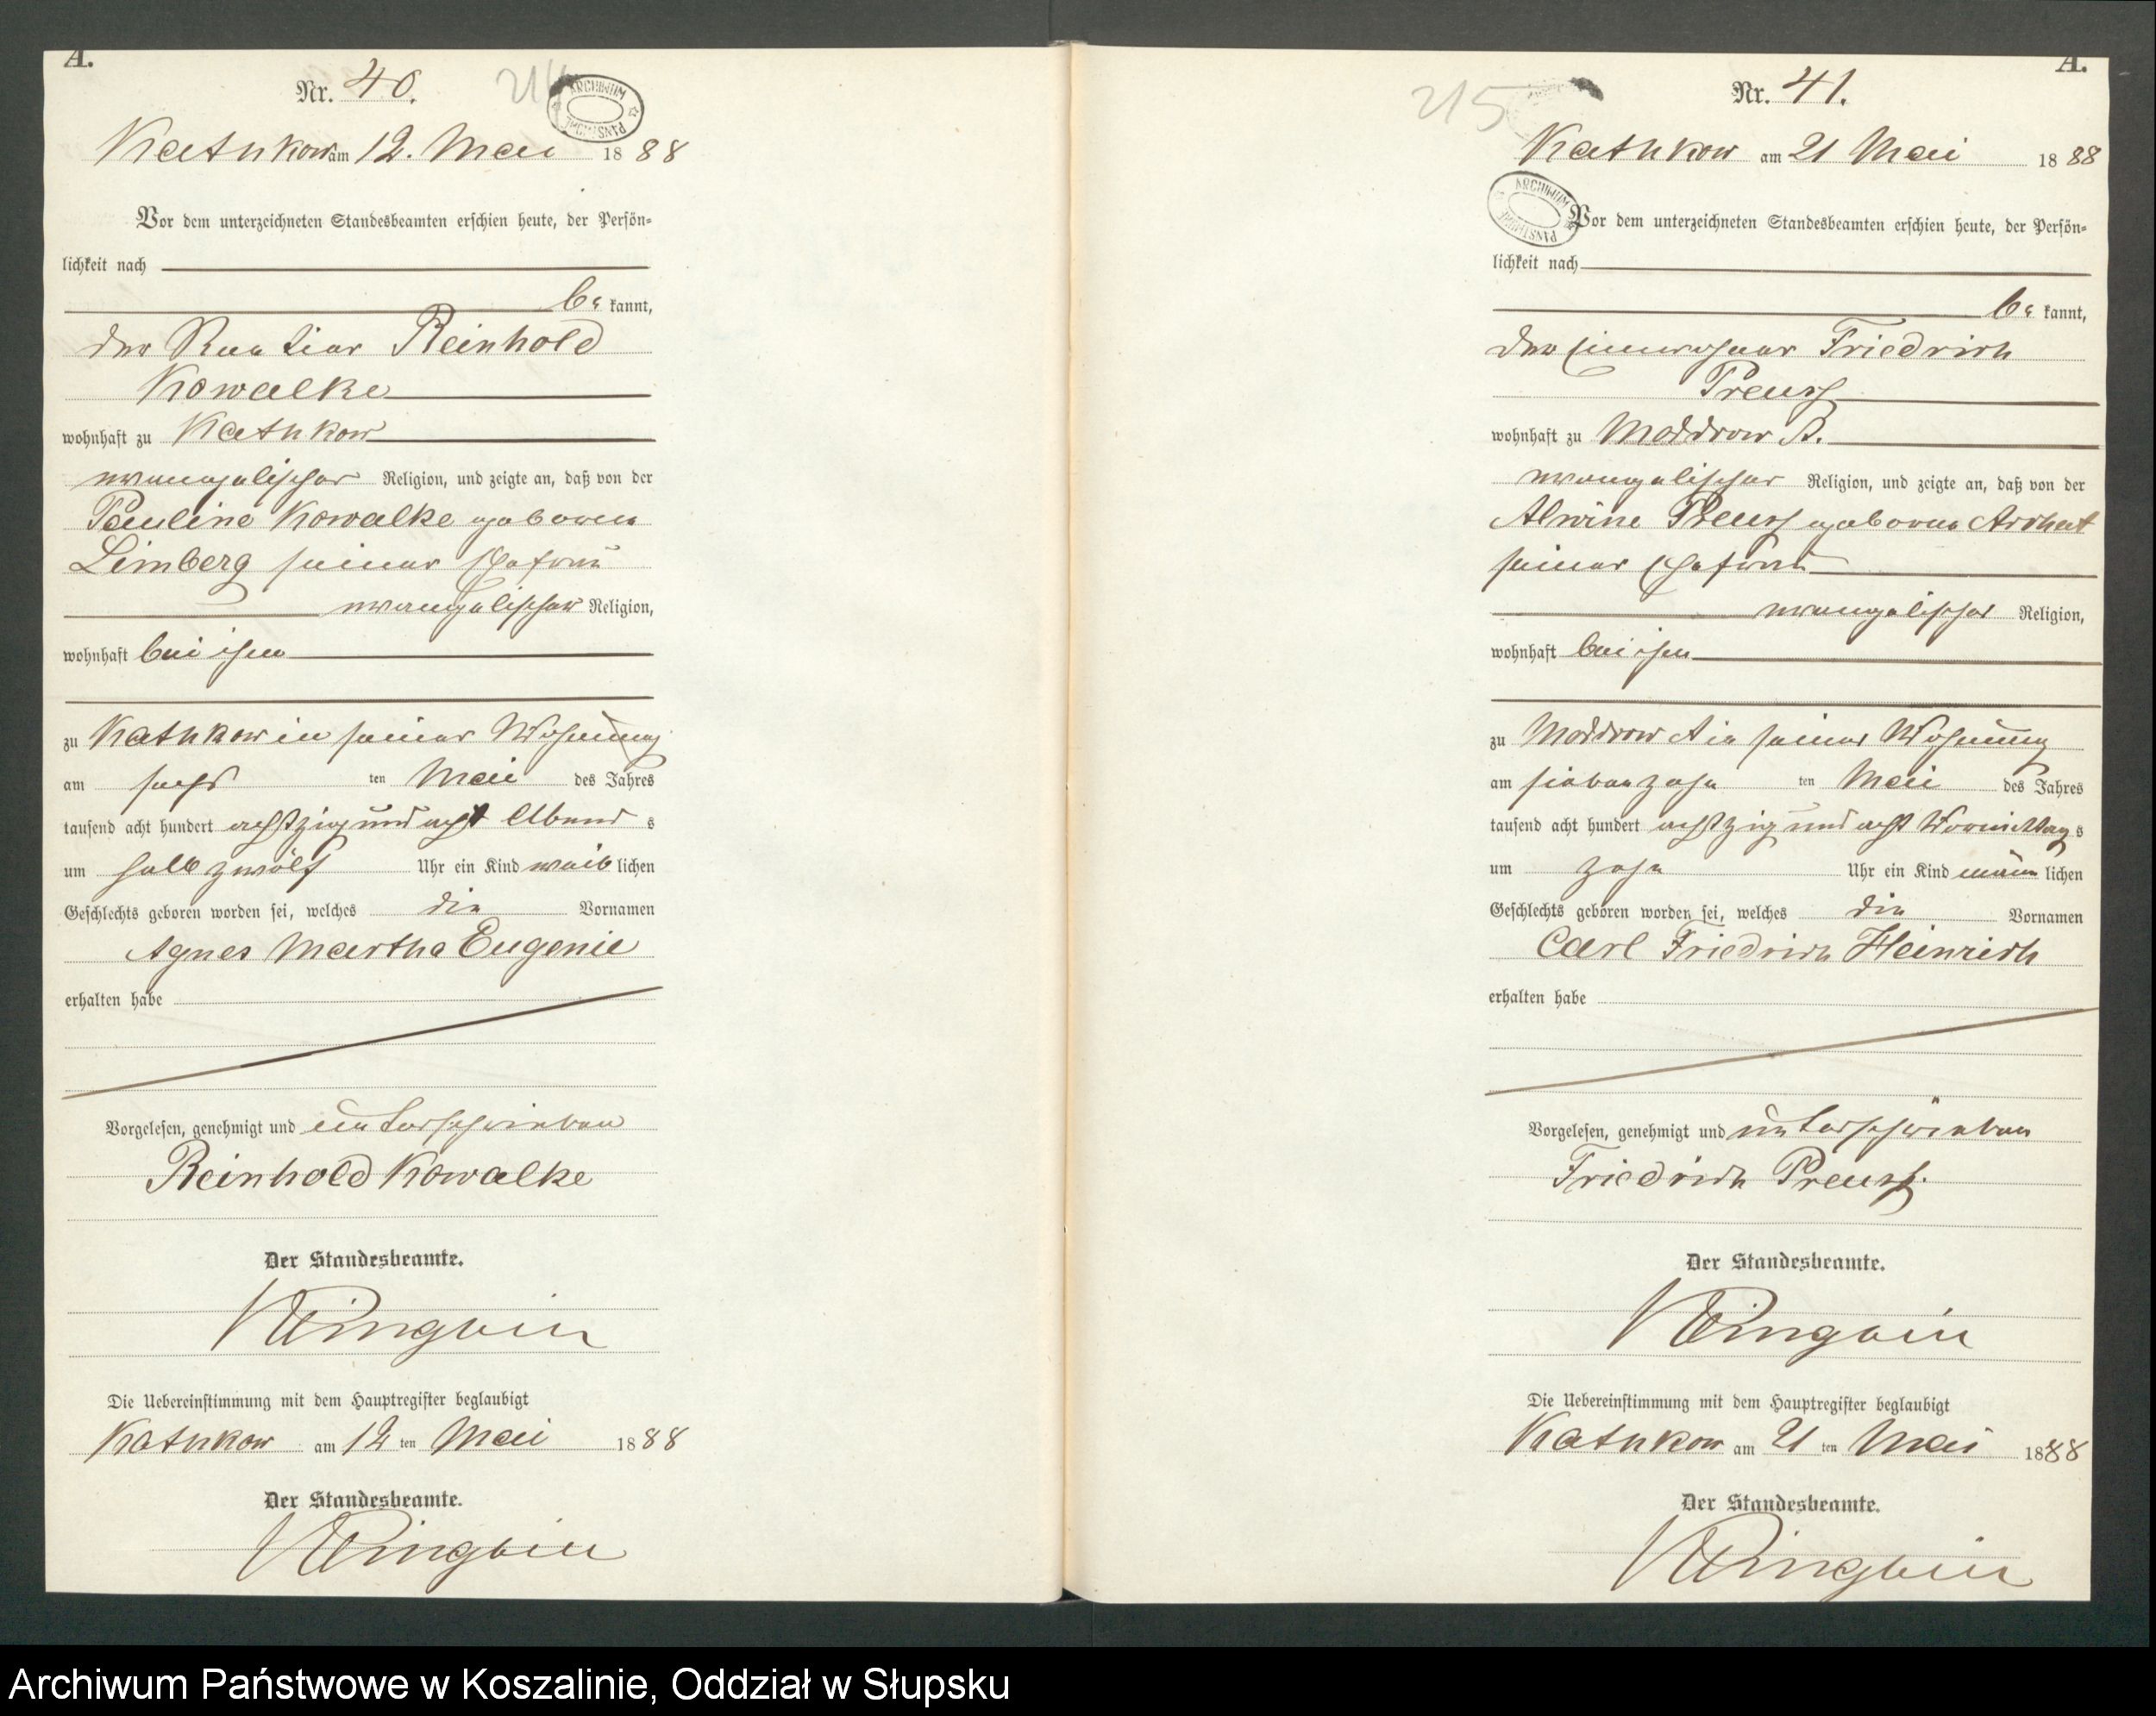 A.
Nr. 40.
214
ARCHIWUM PAŃSTWOWE
Kathkow am 12. Mai 1888
Vor dem unterzeichneten Standesbeamten erschien heute, der Persön-
lichkeit nach
be kannt,
der Rentier Reinhold
Kowalke
wohnhaft zu Kathkow
evangelischer Religion, und zeigte an, daß von der
Pauline Kowalke geborene
Limberg seiner Ehefrau
evangelischer Religion,
wohnhaft bei ihm
zu Kathkow in seiner Wohnung
am sechs ten Mai des Jahres
tausend acht hundert achtzig und acht Abend s
um halb zwölf Uhr ein Kind weib lichen
Geschlechts geboren worden sei, welches die Vornamen
Agnes Martha Eugenie
erhalten habe
Vorgelesen, genehmigt und unterschrieben
Reinhold Kowalke
Der Standesbeamte.
Die Uebereinstimmung mit dem Hauptregister beglaubigt
Kathkow am 12 ten Mai 1888
Der Standesbeamte.
A.
Nr. 41.
215
Kathkow am 21 Mai 1888
ARCHIWUM PAŃSTWOWE
Vor dem unterzeichneten Standesbeamten erschien heute, der Persön-
lichkeit nach
be kannt,
der Einwohner Friedrich
Preuss
wohnhaft zu Moddrow A.
evangelischer Religion, und zeigte an, daß von der
Alwine Preuss geborene
seiner Ehefrau
evangelischer Religion,
wohnhaft bei ihm
zu Moddrow A in seiner Wohnung
am siebenzehn ten Mai des Jahres
tausend acht hundert achtzig und acht Vormittag s
um zehn Uhr ein Kind männ lichen
Geschlechts geboren worden sei, welches die Vornamen
Carl Friedrich Heinrich
erhalten habe
Vorgelesen, genehmigt und unterschrieben
Friedrich Preuss.
Der Standesbeamte.
Die Uebereinstimmung mit dem Hauptregister beglaubigt
Kathkow am 21 ten Mai 1888
Der Standesbeamte.
Archiwum Państwowe w Koszalinie, Oddział w Słupsku